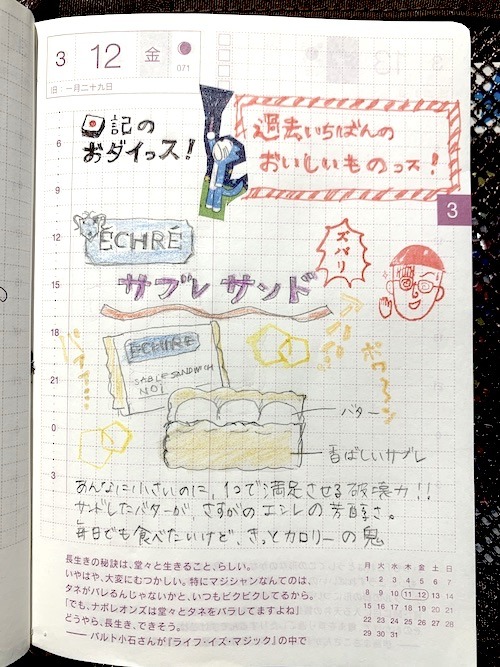 3 12 金 071
旧：一月二十九日
日記の
おダイっス！
過去いちばんの
おいしいものっス！
3
ÉCHRÉ
ズバリ
サブレ サンド
ÉCHIRÉ
SABLE SANDWICH
NO1
バター
香ばしいサブレ
あんなに小さいのに、1つで満足させる破壊力!!
サンドしたバターが、さすがのエシレの芳醇さ。
毎日でも食べたいけど、きっとカロリーの鬼
6
9
12
15
18
21
0
3
長生きの秘訣は、堂々と生きること、らしい。
いやはや、大変にむつかしい。特にマジシャンなんてのは、
タネがバレるんじゃないかと、いつもビクビクしてるから。
「でも、ナポレオンズは堂々とタネをバラしてますよね」
どうやら、長生き、できそう。
——パルト小石さんが『ライフ・イズ・マジック』の中で
月 火 水 木 金 土 日
1 2 3 4 5 6 7
8 9 10 11 12 13 14
15 16 17 18 19 20 21
22 23 24 25 26 27 28
29 30 31